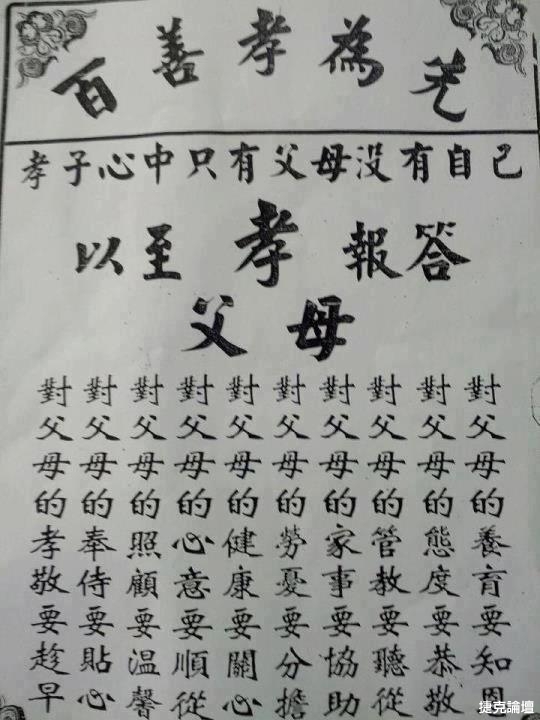 百善孝為先
孝子心中只有父母没有自己
以至孝報答
父母
對父母的養育要知恩
對父母的態度要恭敬
對父母的管教要聽從
對父母的家事要協助
對父母的勞憂要分擔
對父母的健康要關心
對父母的心意要順從
對父母的照顧要溫馨
對父母的奉侍要貼心
對父母的孝敬要趁早
捷克論壇